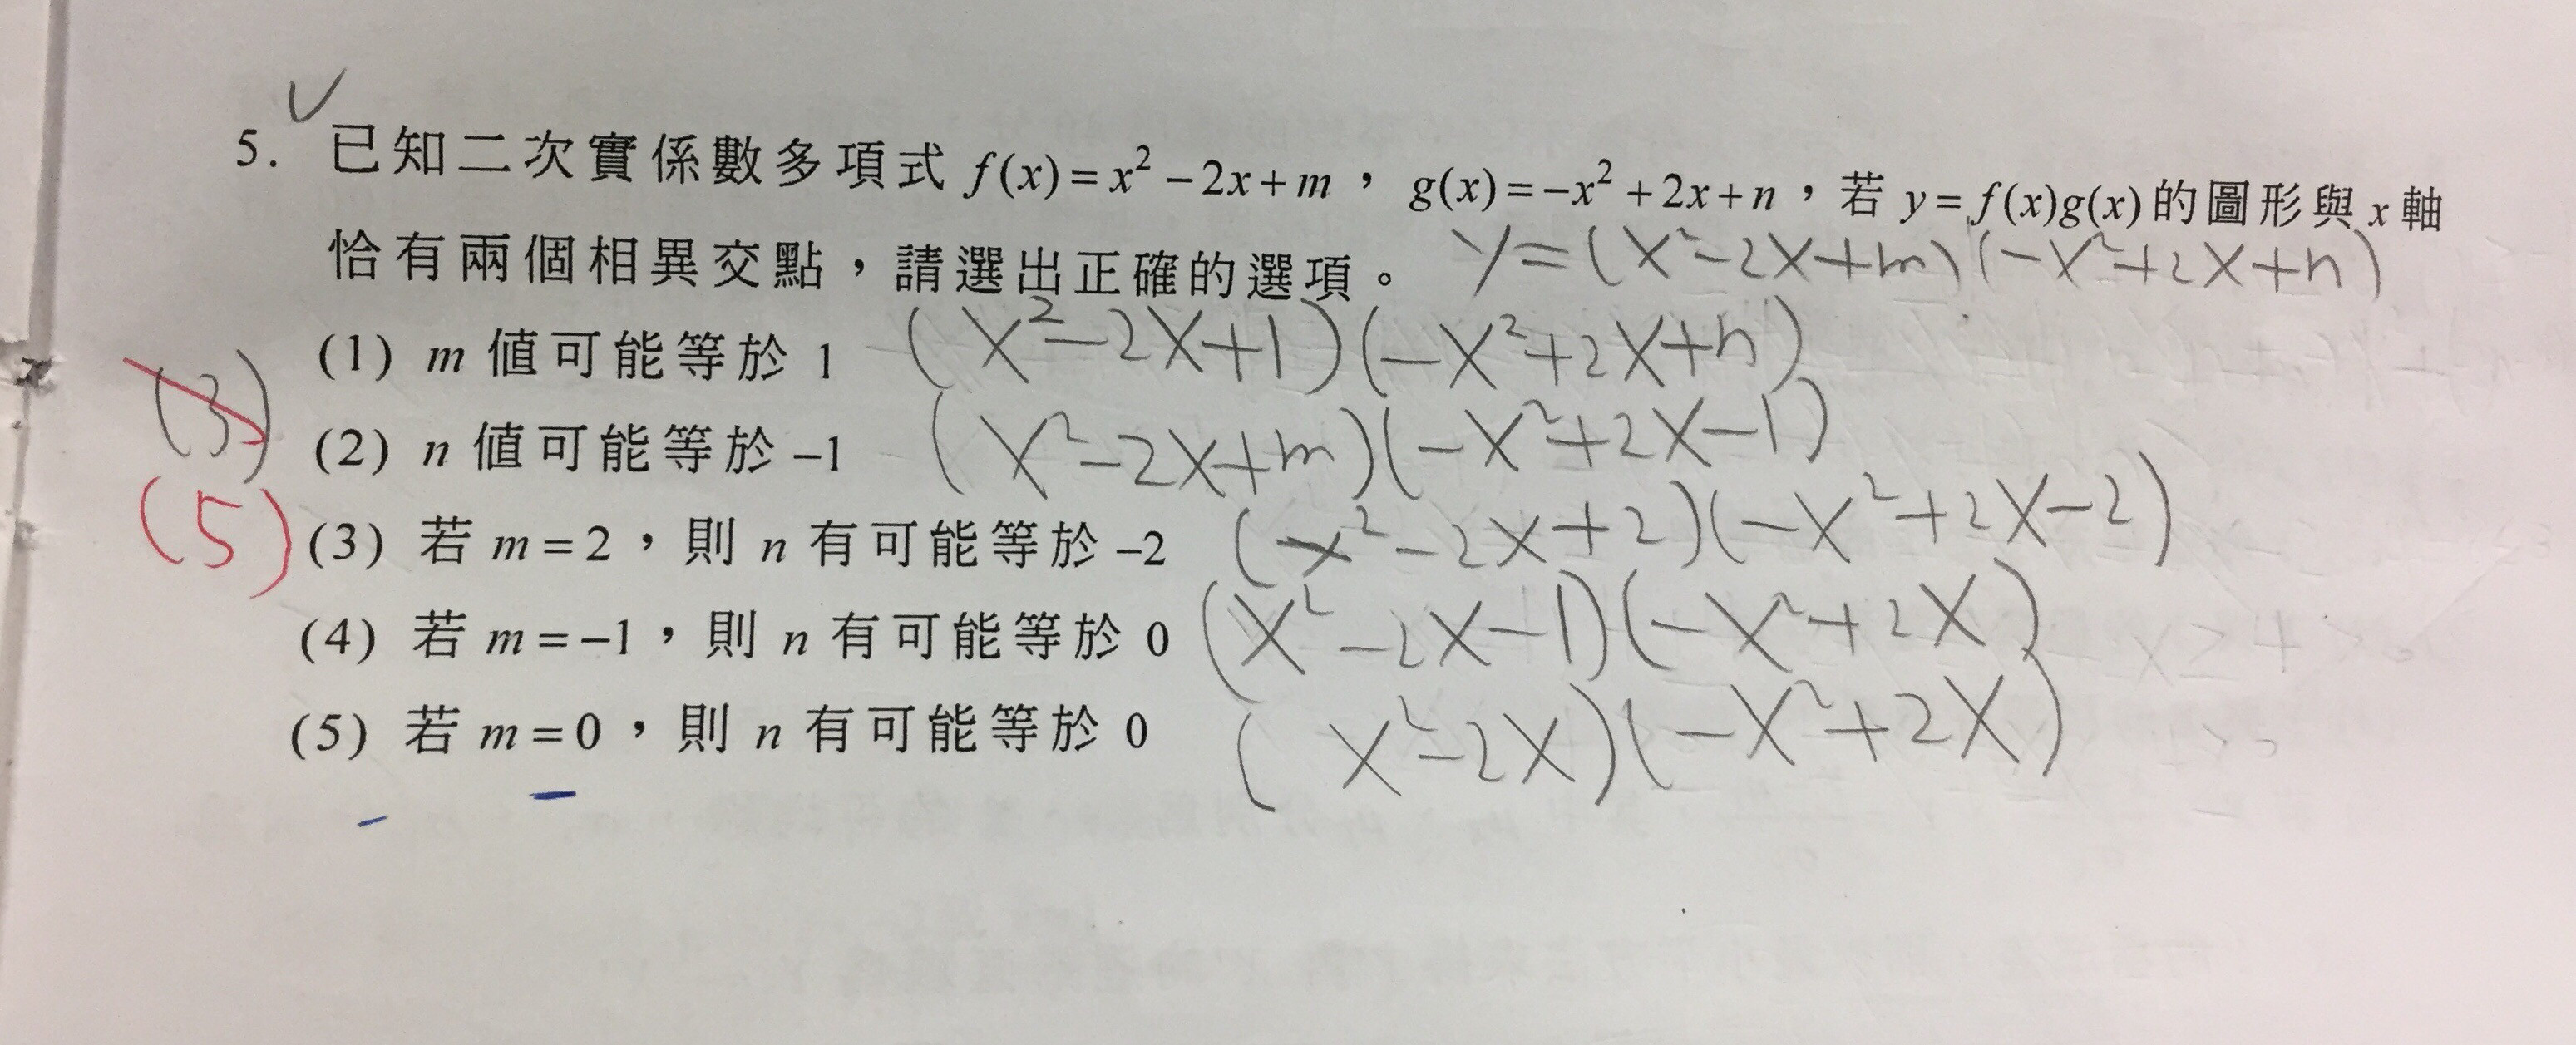 5. 已知二次實係數多項式 f(x)=x²-2x+m，g(x)=-x²+2x+n，若 y=f(x)g(x)的圖形與 x 軸
恰有兩個相異交點，請選出正確的選項。 y=(x²-2x+m)(-x²+2x+n)
(1) m 值可能等於 1 (x²-2x+1)(-x²+2x+n)
(3)
(2) n 值可能等於 -1 (x²-2x+m)(-x²+2x-1)
(5)
(3) 若 m=2，則 n 有可能等於 -2 (x²-2x+2)(-x²+2x-2)
(4) 若 m=-1，則 n 有可能等於 0 (x²-2x-1)(-x²+2x)
(5) 若 m=0，則 n 有可能等於 0 (x²-2x)(-x²+2x)